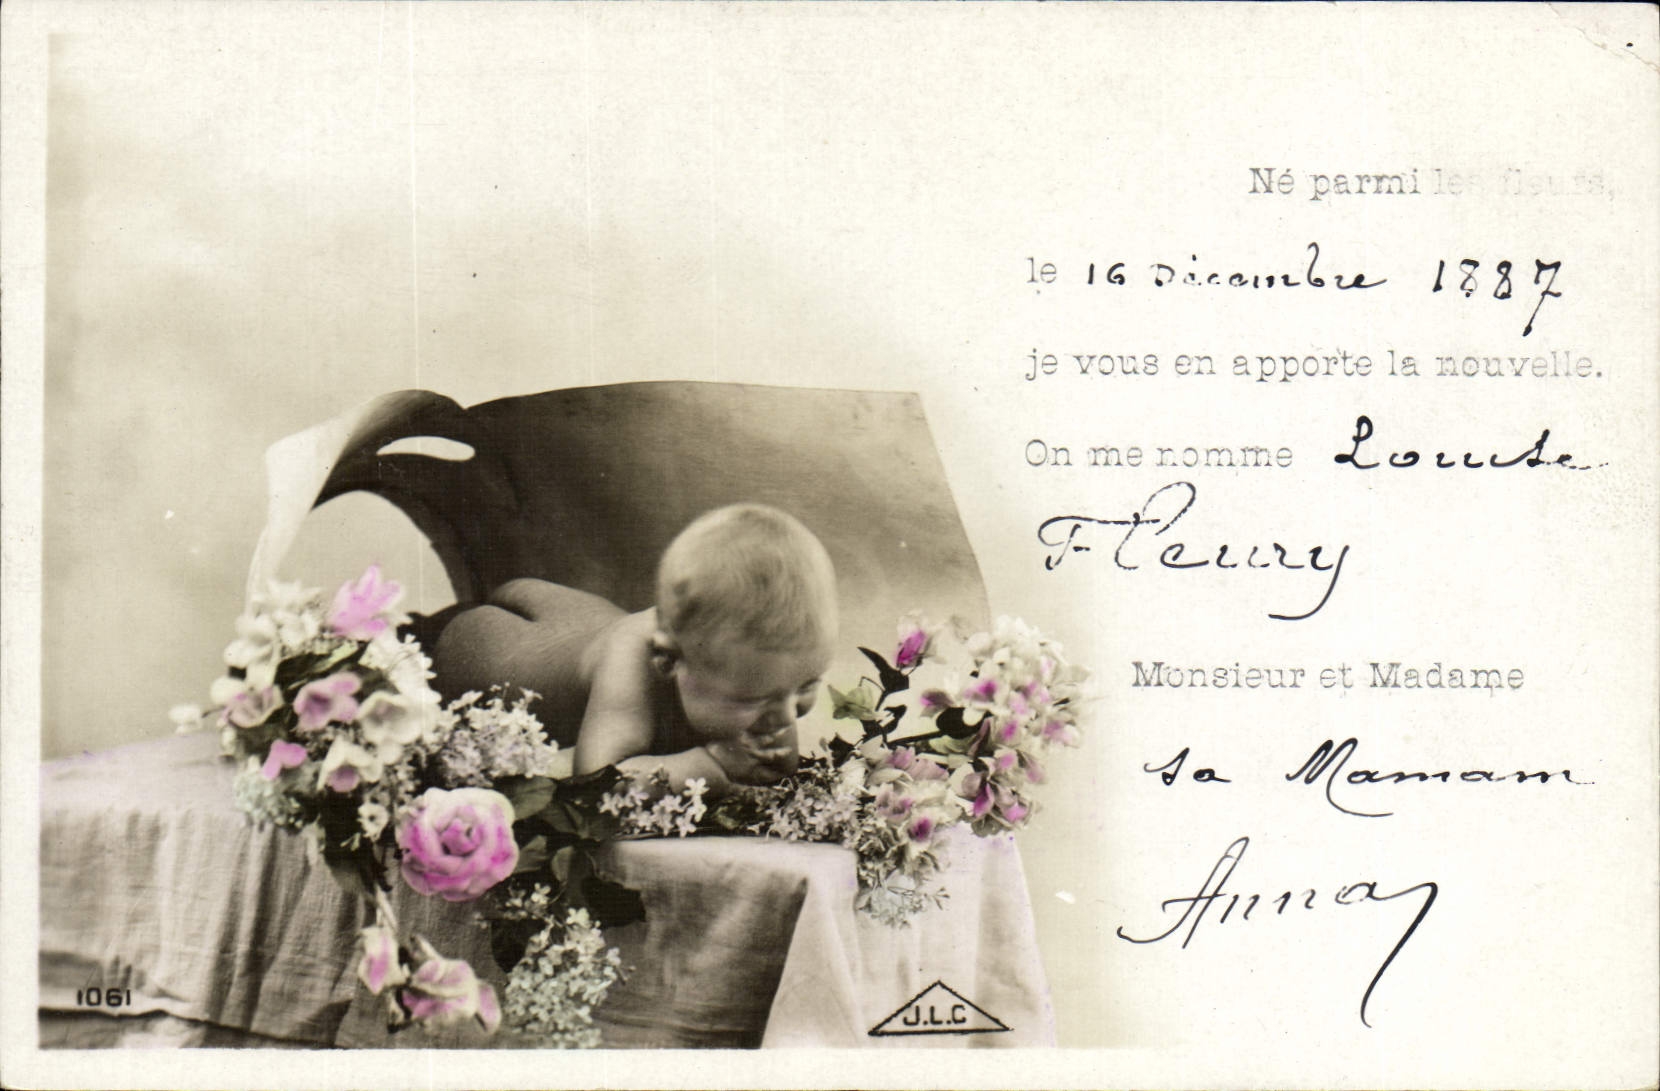 Né parmi les fleurs,
le 16 Décembre 1887
je vous en apporte la nouvelle.
On me nomme Louise
Fleury
Monsieur et Madame
sa Mamam
Anna
1061
J.L.C